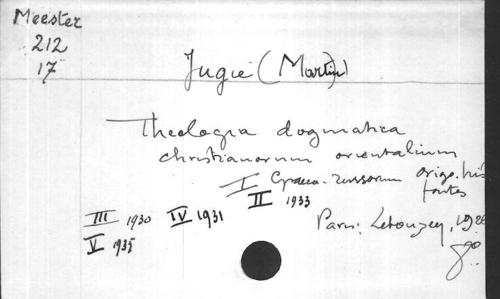 Meester
212
17
Jugie (Martin)
Theologia dogmatica
christianorum orientalium
I Graeco-russorum origo, his
fontes
II 1933
III 1930 IV 1931
V 1935
Paris: Letouzey, 192
8°